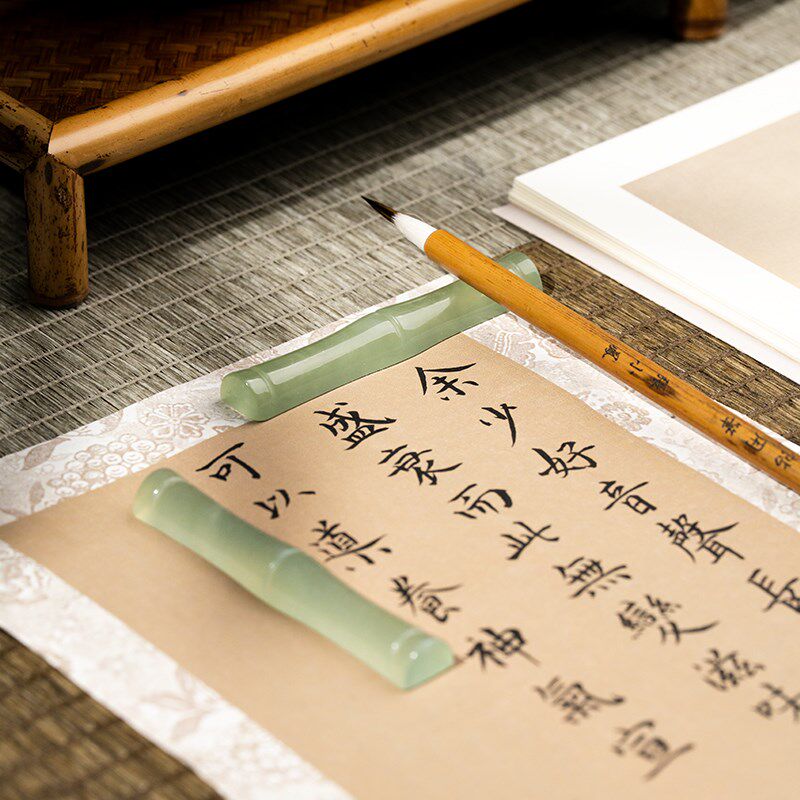 余少好音聲長
盛衰而此無變滋味
可以導養神氣宣